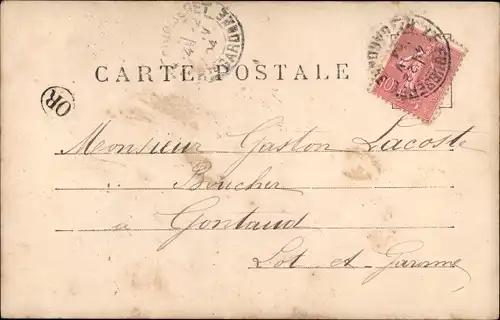 CARTE POSTALE
OR
Monsieur Gaston Lacoste
Boucher
à Gontaud
Lot et Garonne